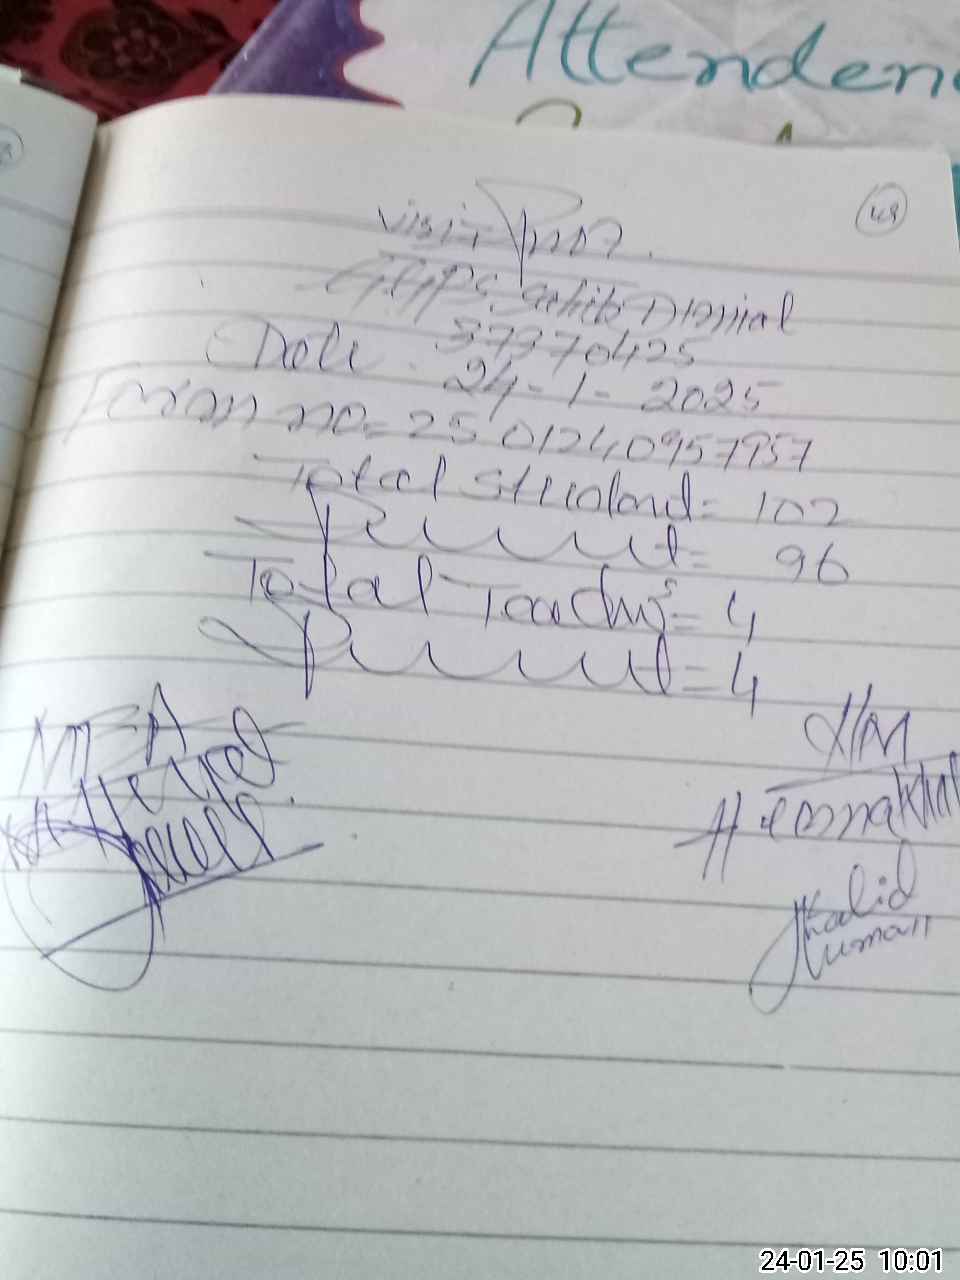 Attenden
48
Visit Proof
GGPS Sahib Dismial
37370425
Date 24-1-2025
Form no= 2501240957957
Total Student= 102
Present= 96
Total Teachers= 4
Present= 4
MEA
H/M
Khalid
Kumari
24-01-25 10:01